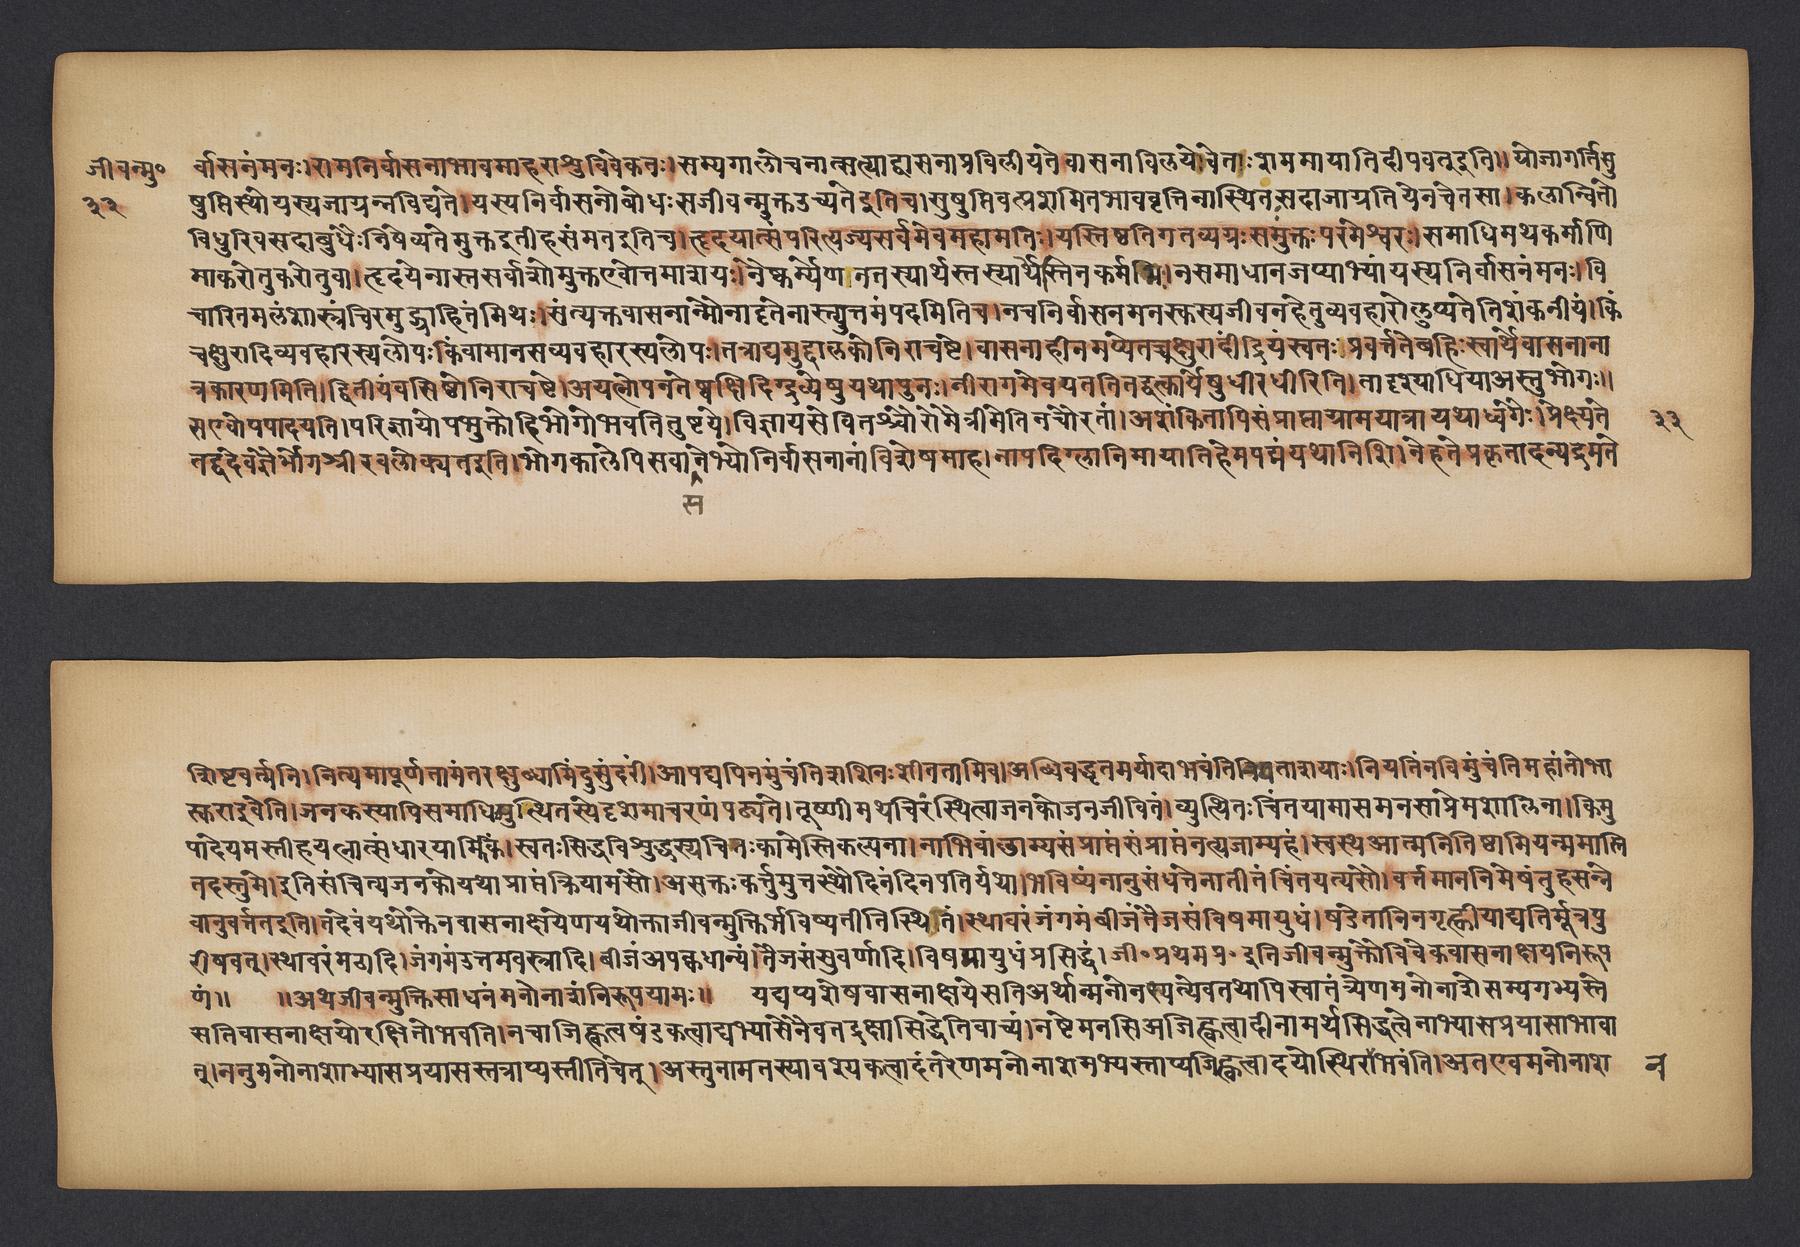 जीवन्मु॰ र्वासनंमनः।रामनिर्वासनाभावमाहराश्रुविवेकतः।सम्यगालोचनात्सत्याद्वासनाप्रविलीयतेवासनाविलयेचेतःशममायातिदीपवत्इति॥योजागर्तिसु
३३ षुप्तिस्थोयस्यजाग्रन्नविद्यते।यस्यनिर्वासनोबोधःसजीवन्मुक्तउच्यतेइतिच।सुषुप्तिवत्प्रशमितभाववृत्तिनास्थितंसदाजाग्रतियेनचेतसा।कलान्वितो
विधुरिवसदाबुधैःनिषेव्यतेमुक्तइतीहसंमतइतिच।हृदयात्संपरित्यज्यसर्वमेवमहामतिः।यस्तिष्ठतिगतव्यग्रःसमुक्तःपरमेश्वरः।समाधिमथकर्माणि
माकरोतुकरोतुवा।हृदयेनास्तसर्वाशोमुक्तएवोत्तमाशयः।नैष्कर्म्येणनतस्यार्थस्तस्यार्थोस्तिनकर्मभिः।नसमाधानजप्याभ्यांयस्यनिर्वासनंमनः।वि
चारितमलंशास्त्रंचिरमुद्ग्राहितंमिथः।संत्यक्तवासनान्मौनादृतेनास्त्युत्तमंपदमितिच।नचनिर्वासनमनस्कस्यजीवनहेतुव्यवहारोलुप्यतेतिशंकनीयं।किं
चक्षुरादिव्यवहारस्यलोपःकिंवामानसव्यवहारस्यलोपः।तत्राद्यमुद्दालकोनिराचष्टे।वासनाहीनमप्येतच्चक्षुरादींद्रियंस्वतःप्रवर्त्ततेबहिःस्वार्थेवासनाना
त्रकारणमिति।द्वितीयंवसिष्ठोनिराचष्टे।अयत्नोपनतेष्वक्षिदिग्द्रव्येषुयथापुनः।नीरागमेवपततितद्वत्कार्येषुधीरधीरिति।तादृश्याधियाअस्तुभोगः॥
सएवोपपादयति।परिज्ञायोपभुक्तोहिभोगोभवतितुष्टये।विज्ञायसेवितश्चोरोमैत्रीमेतिनचोरतां।अशंकितापिसंप्राप्ताग्रामयात्रायथाध्वगैः।प्रेक्ष्यते ३३
तद्वदेवज्ञैर्भोगश्रीरवलोक्यतइति।भोगकालेपिसवानेभ्योनिर्वासनानांविशेषमाह।नापदिग्लानिमायातिहेमपद्मंयथानिशि।नेहतेप्रकृतादन्यद्रमते
स
शिष्टवर्त्मनि।नित्यमापूर्णतामंतरक्षुब्धामिंदुसुंदरीं।आपद्यपिनमुंचंतिशशिनःशीततामिव।अब्धिवद्धृतमर्यादाभवंतिविशताशयाः।नियतिंनविमुंचंतिमहांतोभा
स्कराइवेति।जनकस्यापिसमाधिव्युत्थितस्येदृशमाचरणंपठ्यते।तूष्णीमथचिरंस्थित्वाजनकोजनजीवितं।व्युत्थितःचिंतयामासमनसाप्रेमशालिना।किमु
पादेयमस्तीहयत्नात्संधारयामिकिं।स्वतःसिद्धविशुद्धस्यचितःकामेस्तिकल्पना।नाभिवांछाम्यसंप्राप्तंसंप्राप्तंनत्यजाम्यहं।स्वस्थआत्मनितिष्ठामियन्ममास्ति
तदस्तुमे।इतिसंचित्यजनकोयथाप्राप्तंक्रियामसौ।असक्तःकर्त्तुमुत्तस्थौदिनंदिनपतिर्यथा।भविष्यंनानुसंधत्तेनातीतंचिंतयत्यसौ।वर्त्तमाननिमेषंतुहसन्ने
वानुवर्त्ततइति।तदेवंयथोक्तेनवासनाक्षयेणयथोक्ताजीवन्मुक्तिर्भविष्यतीतिस्थितं।स्थावरंजंगमंबीजंतैजसंविषमायुधं।षडेतानिनगृह्णीयाद्यतिर्मूत्रपु
रीषवत्।स्थावरंमठादि।जंगमंउत्तमवस्त्रादि।बीजंअपक्वधान्यं।तैजसंसुवर्णादि।विषमायुधंप्रसिद्धं।जी॰प्रथमप्र॰इतिजीवन्मुक्तौविवेकवासनाक्षयनिरूप
णं॥ ॥अथजीवन्मुक्तिसाधनंमनोनाशंनिरूपयामः॥ यद्यप्यशेषवासनाक्षयेसतिअर्थान्मनोनश्यत्येवतथापिस्वातंत्र्येणमनोनाशेसम्यगभ्यस्ते
सतिवासनाक्षयोरक्षितोभवति।नचाजिह्वत्वषंडकत्वाद्यभ्यासेनैवतद्रक्षासिद्धेतिवाच्यं।नष्टेमनसिअजिह्वत्वादीनामर्थसिद्धत्वेनाभ्यासप्रयासाभावा
त्।ननुमनोनाशाभ्यासप्रयासस्तत्राप्यस्तीतिचेत्।अस्तुनामतस्यावश्यकत्वादंतरेणमनोनाशमभ्यस्ताप्यजिह्वत्वादयोस्थिराभवंति।अतएवमनोनाश न